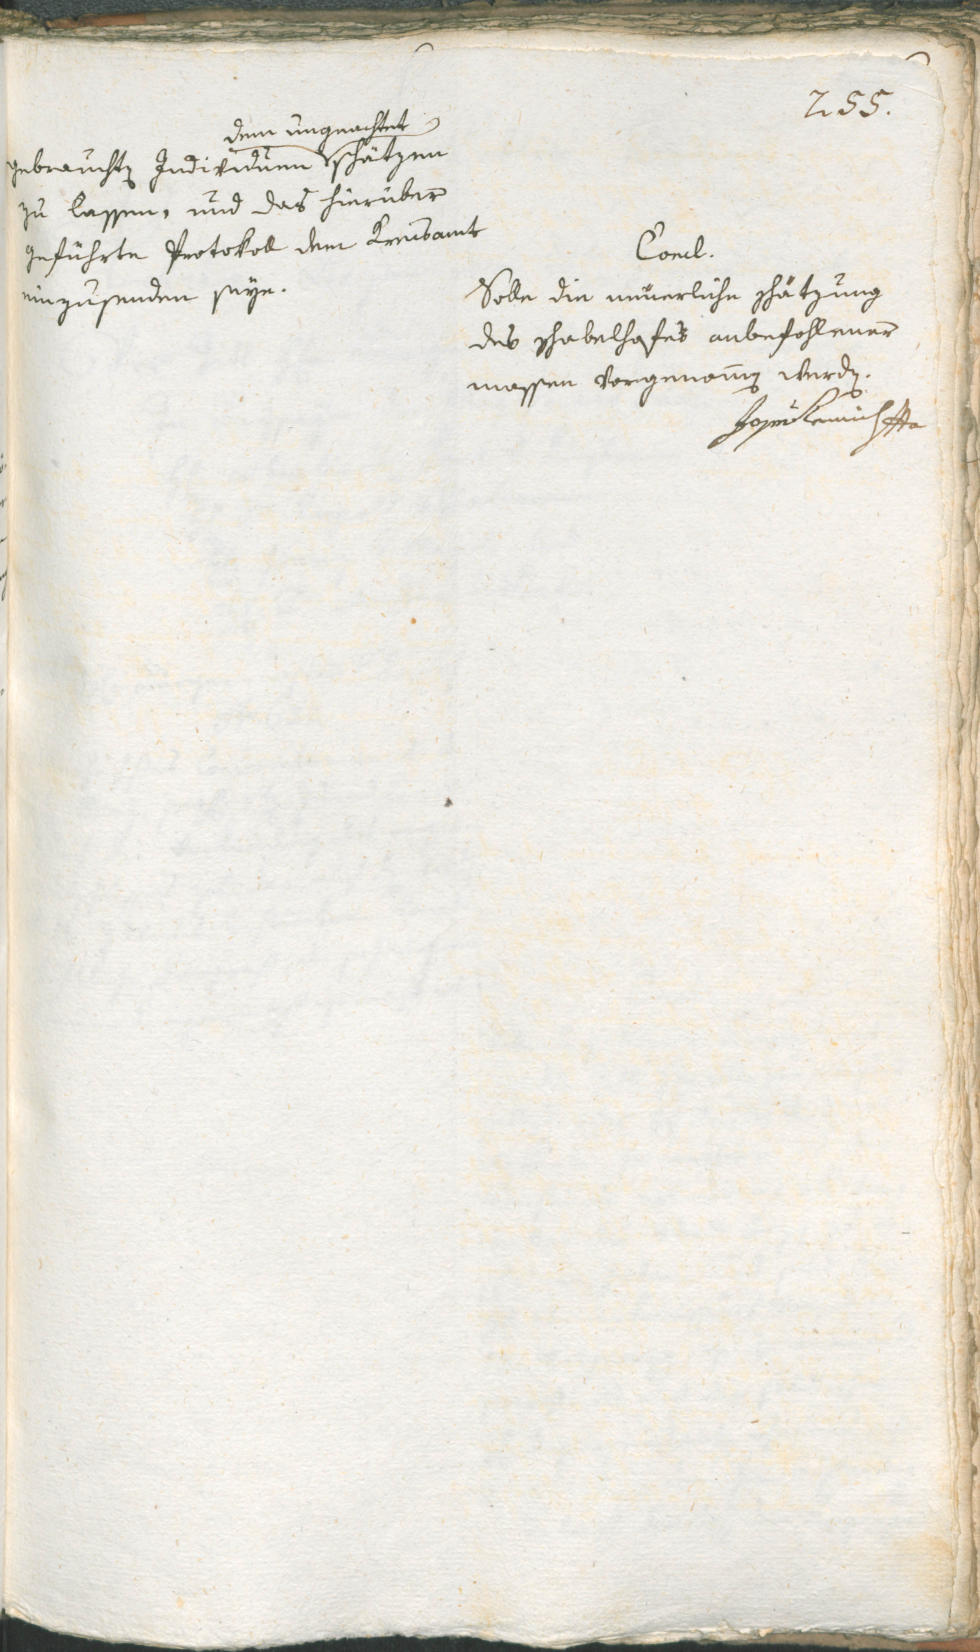 255.
dem ungeachtet
gebrauchtẽ Individuen schätzen
zu lassen, und das hierüber
geführte Protokoll dem Kreisamt
einzusenden seye.
Concl.
Solle die neuerliche schätzung
des schabelhofes anbefohlener
massen vorgenom̄ẽ werdẽ.